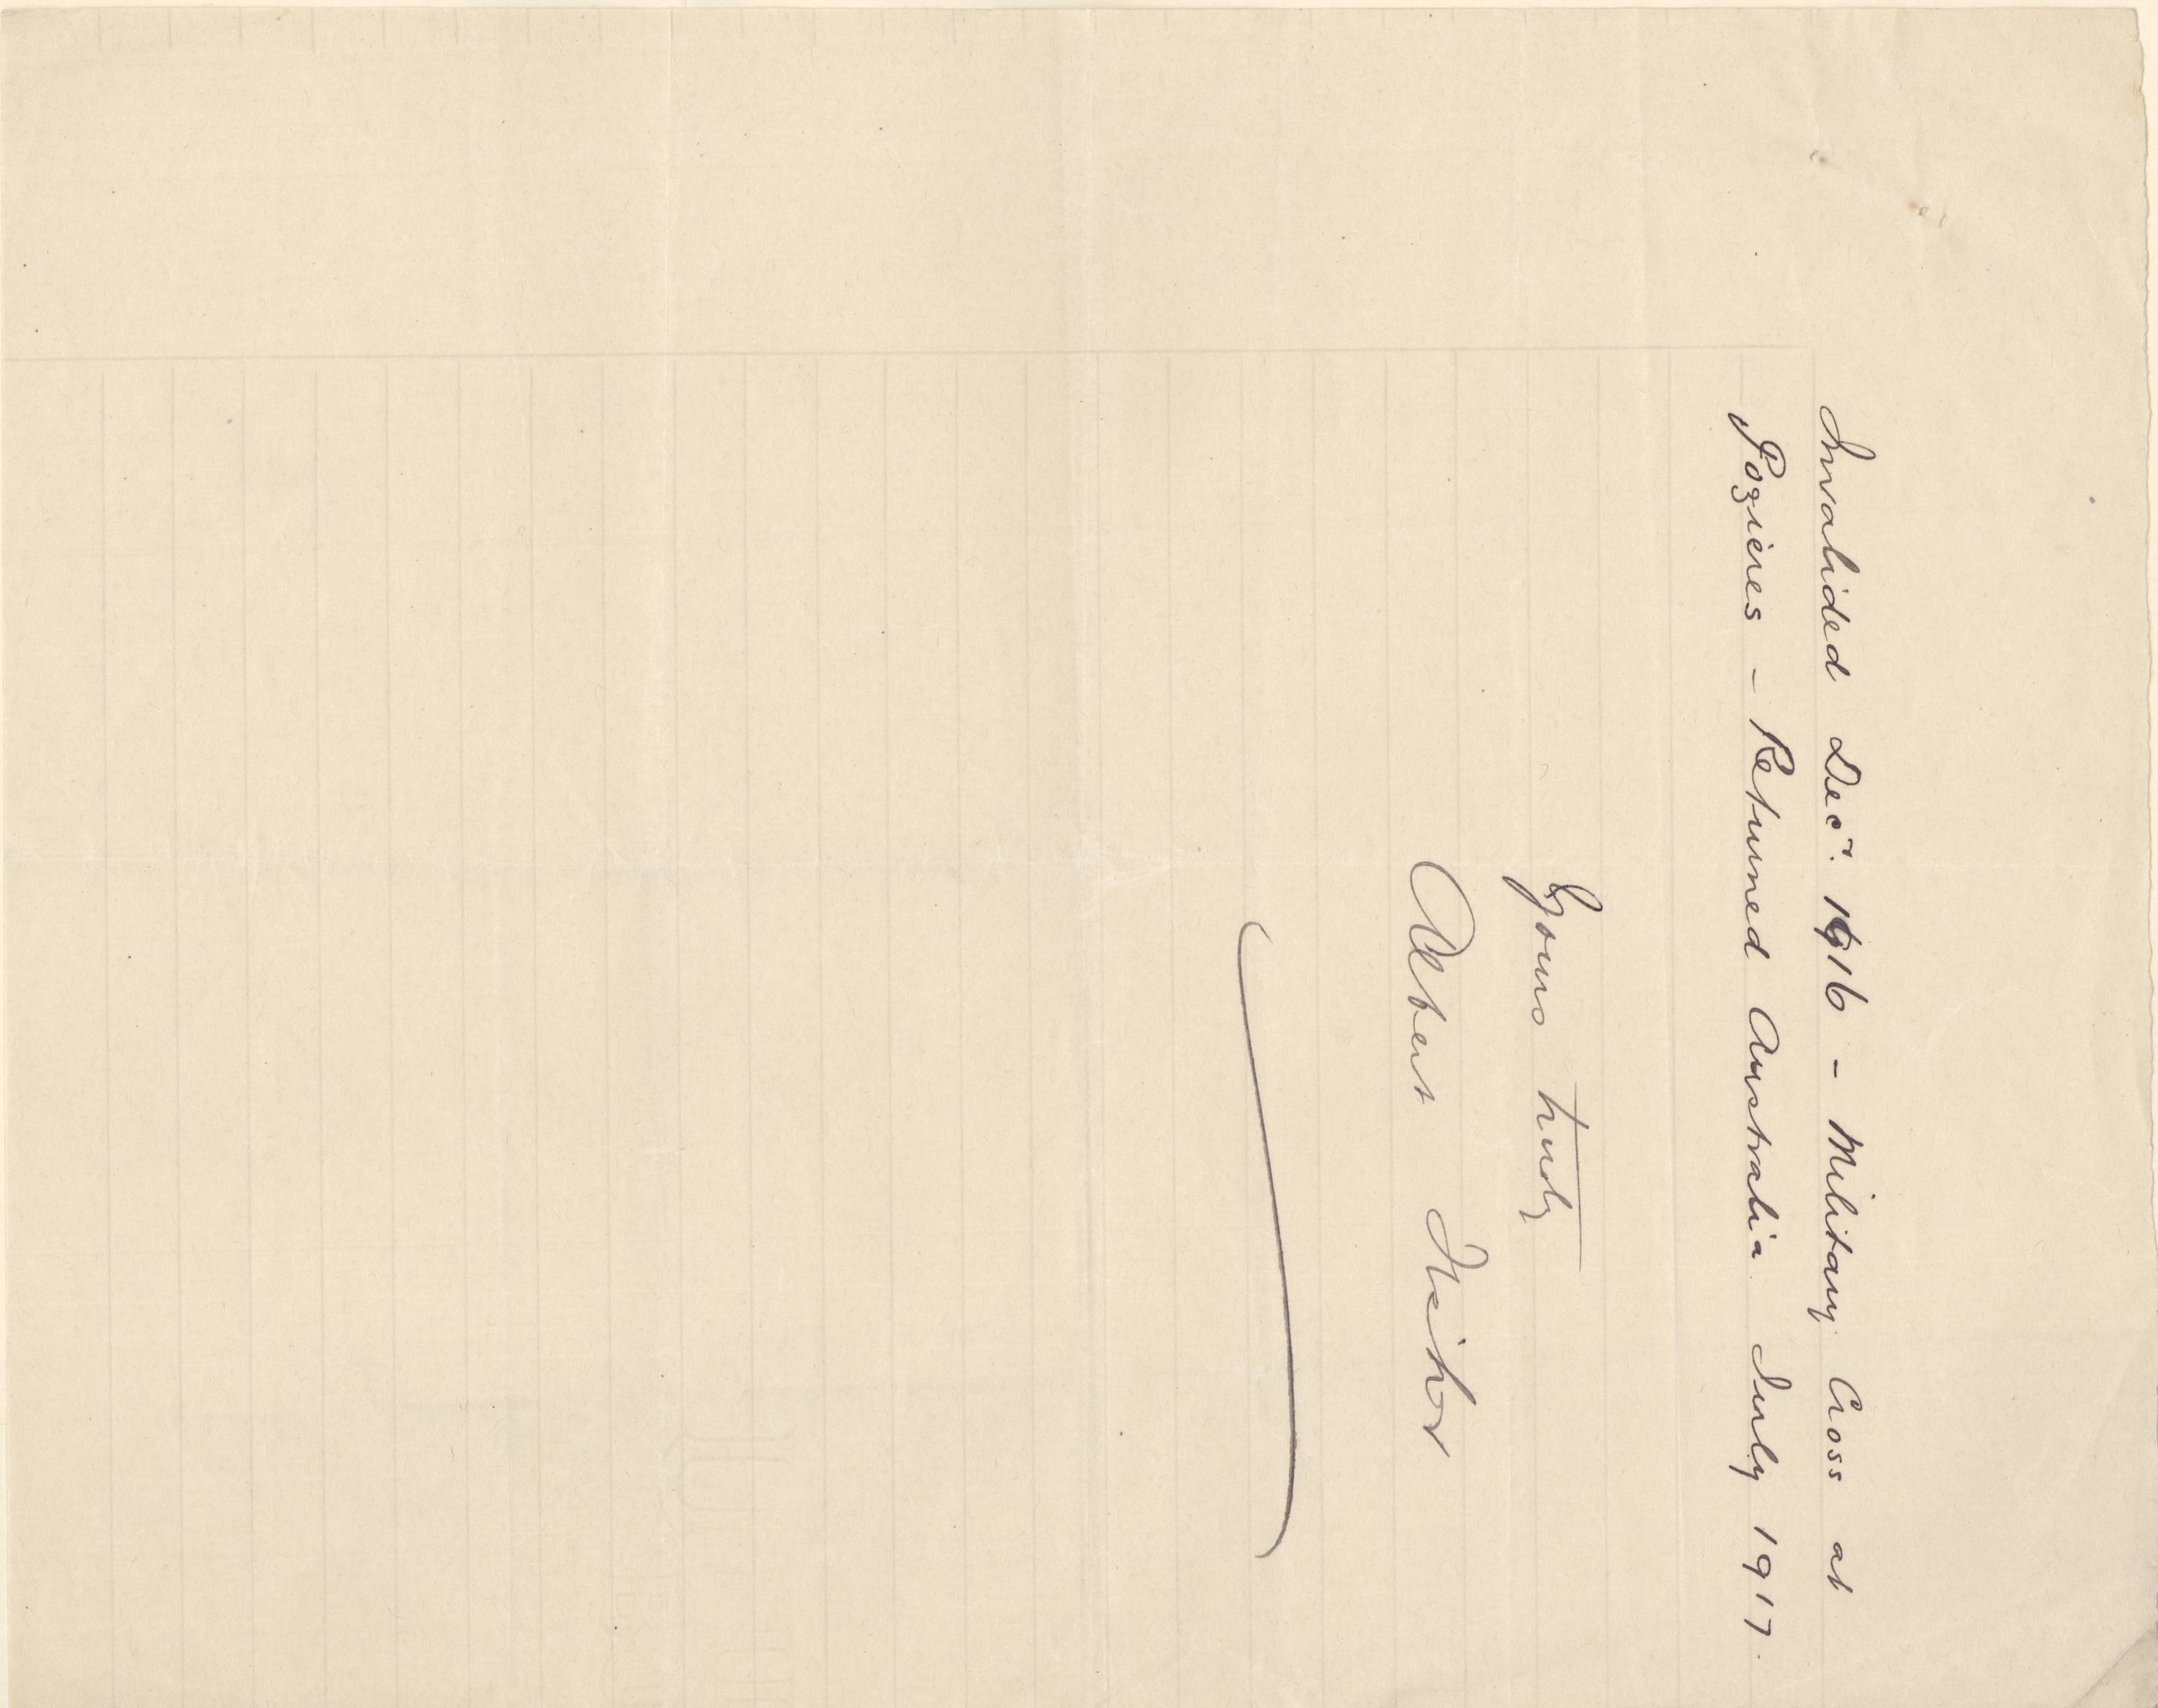 Invalided Dec. 1916 - Military Cross at
Pozieres - Returned Australia July 1917.
Yours truly
Albert